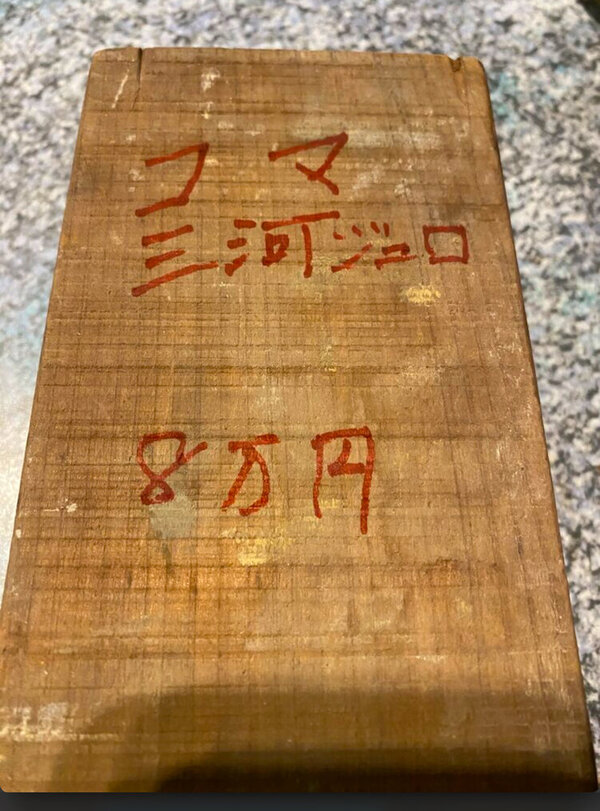 コマ
三河ジュロ
8万円